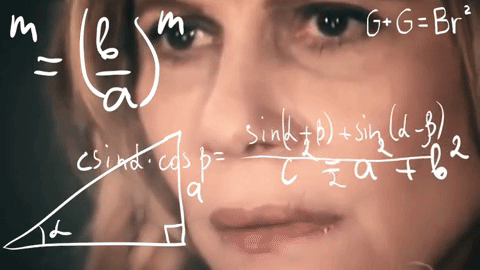 m = (b/a)^m
G+G=Br²
csinα·cosβ = sin(α+β)+sin(α-β) / 2 2
c = a + b²
2
a
α